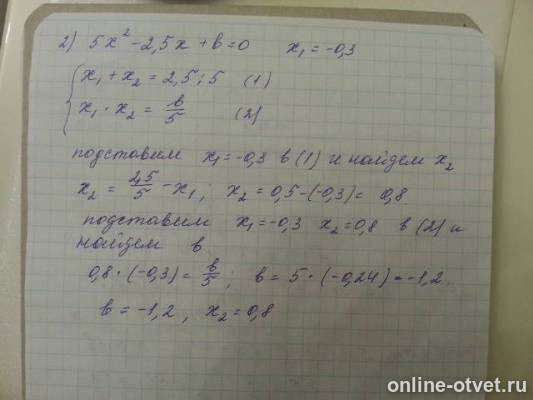 2) 5x² - 2,5x + b = 0    x₁ = -0,3
{ x₁ + x₂ = 2,5 : 5   (1)
x₁ · x₂ = b/5   (2)
подставим x₁ = -0,3 в (1) и найдем x₂
x₂ = 2,5/5 - x₁ ; x₂ = 0,5 - (-0,3) = 0,8.
подставим x₁ = -0,3 x₂ = 0,8 в (2) и
найдем b.
0,8 · (-0,3) = b/5 ; b = 5 · (-0,24) = -1,2.
b = -1,2 , x₂ = 0,8
online-otvet.ru